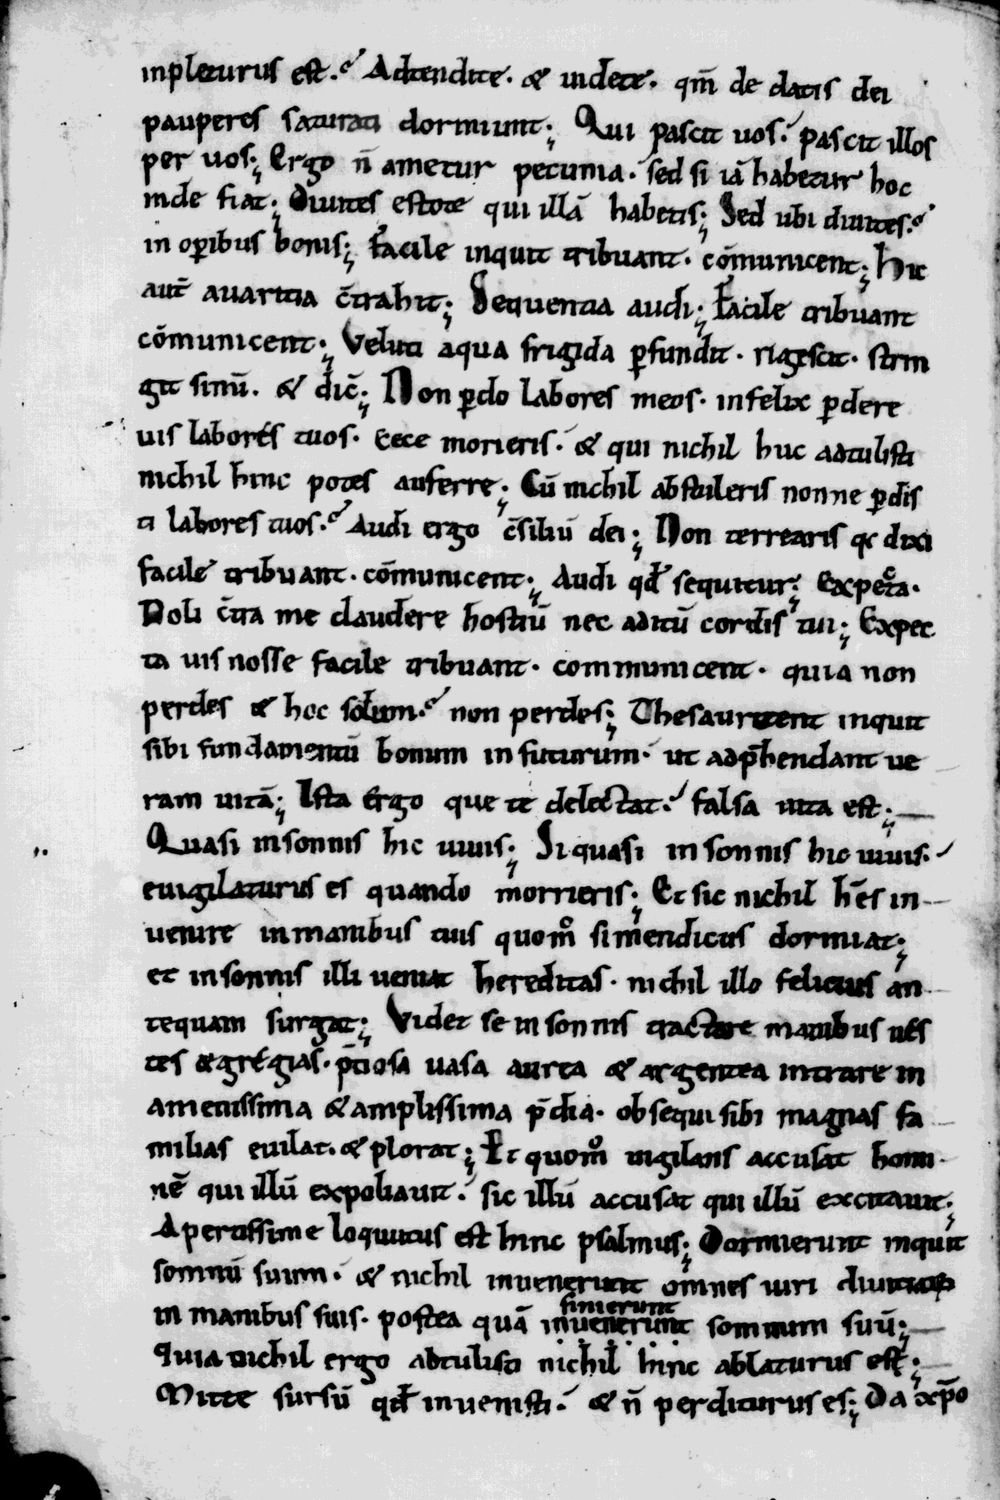 inpleturus est. Adtendite. & uidete. qm̄ de datis dei
pauperes saturati dormiunt; Qui pascit uos. pascit illos
per uos; Ergo n̄ ametur pecunia. sed si iā habetur hoc
inde fiat; Diuites estote qui illā habetis; Sed ubi diuites.
in oꝑibus bonis; Facile inquit tribuant. cōmunicent; Hic
aut̄ auaritia c̄trahit; Sequentia audi; Facile tribuant
cōmunicent; Veluti aqua frigida ꝑfundit. rigescit. strin
git sinū. & dic̄; Non ꝑdo labores meos. infelix ꝑdere
uis labores tuos. Ecce morieris. & qui nichil huc adtulisti
nichil hinc potes auferre; Cū nichil abstuleris nonne ꝑdis
ti labores tuos. Audi ergo c̄siliū dei; Non terrearis qc dixi
facile tribuant. cōmunicent; Audi qđ sequitur; Expecta.
Noli c̄tra me claudere hostiū nec aditū cordis tui; Expec
ta uis nosse facile tribuant. communicent. quia non
perdes & hoc solum. non perdes; Thesaurizent inquit
sibi fundamentū bonum in futurum. ut adp̄hendant ue
ram uitā; Ista ergo que te delectat. falsa uita est;
Quasi insonnis hic uiuis; Si quasi in sonnis hic uiuis.
euigilaturus es quando morrieris; Et sic nichil h̄es in
uenire inmanibus tuis quom̊ si mendicus dormiat;
et in sonnis illi ueniat hereditas. nichil illo felicius an
tequam surgat; Videt se in sonnis tractare manibus uēs
tes & gregias. p̄tiosa uasa aurea & argentea intrare in
amenissima & amplissima p̄dia. obsequi sibi magnas fa
milias euilat. & plorat; Et quom̊ uigilans accusat homi
nē qui illū expoliauit. sic illū accusat qui illū excitauit;
Apertissime loquutus est hinc psalmus; Dormierunt inquit
somnū suum. & nichil inuenerunt omnes uiri diuitiarum
in manibus suis. postea quā inuenerunt somnum suū;
finierunt
Quia nichil ergo abtulisti nichil hinc ablaturus est;
Mitte sursū qđ inuenisti. & n̄ perditurus es; Da xp̄o